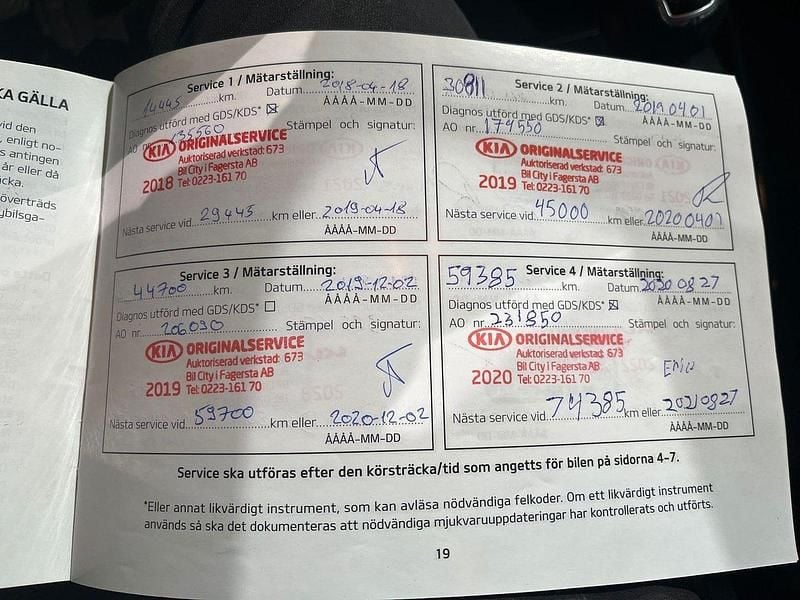 KA GÄLLA
vid den
, enligt no-
s antingen
år eller då
cka.
överträds
ybilsga-
Service 1 / Mätarställning:
14445 km. Datum 2018-04-18
ÅÅÅÅ-MM-DD
Diagnos utförd med GDS/KDS* ☒
AO nr. 135560 Stämpel och signatur:
KIA ORIGINALSERVICE
Auktoriserad verkstad: 673
Bil City i Fagersta AB
2018 Tel: 0223-161 70
Nästa service vid 29445 km eller 2019-04-18
ÅÅÅÅ-MM-DD
Service 2 / Mätarställning:
30811 km. Datum 2019 04 01
ÅÅÅÅ-MM-DD
Diagnos utförd med GDS/KDS* ☒
AO nr. 174550 Stämpel och signatur:
KIA ORIGINALSERVICE
Auktoriserad verkstad: 673
Bil City i Fagersta AB
2019 Tel: 0223-161 70
Nästa service vid 45000 km eller 2020 04 01
ÅÅÅÅ-MM-DD
Service 3 / Mätarställning:
44700 km. Datum 2019-12-02
ÅÅÅÅ-MM-DD
Diagnos utförd med GDS/KDS* ☐
AO nr. 206090 Stämpel och signatur:
KIA ORIGINALSERVICE
Auktoriserad verkstad: 673
Bil City i Fagersta AB
2019 Tel: 0223-161 70
Nästa service vid 59700 km eller 2020-12-02
ÅÅÅÅ-MM-DD
Service 4 / Mätarställning:
59385 km. Datum 2020 08 27
ÅÅÅÅ-MM-DD
Diagnos utförd med GDS/KDS* ☒
AO nr. 231850 Stämpel och signatur:
KIA ORIGINALSERVICE
Auktoriserad verkstad: 673
Bil City i Fagersta AB
2020 Tel: 0223-161 70
Nästa service vid 74385 km eller 2021 08 27
ÅÅÅÅ-MM-DD
Service ska utföras efter den körsträcka/tid som angetts för bilen på sidorna 4-7.
*Eller annat likvärdigt instrument, som kan avläsa nödvändiga felkoder. Om ett likvärdigt instrument
används så ska det dokumenteras att nödvändiga mjukvaruuppdateringar har kontrollerats och utförts.
19